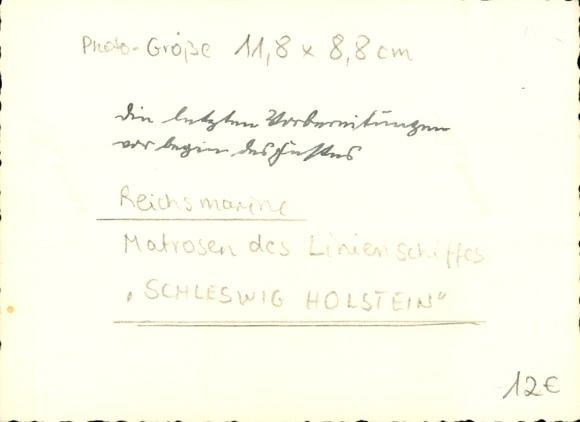 Photo-Größe 11,8 x 8,8 cm
die letzten Vorbereitungen
vor begin des Festes
Reichsmarine
Matrosen des Linienschiffes
„SCHLESWIG HOLSTEIN“
12€